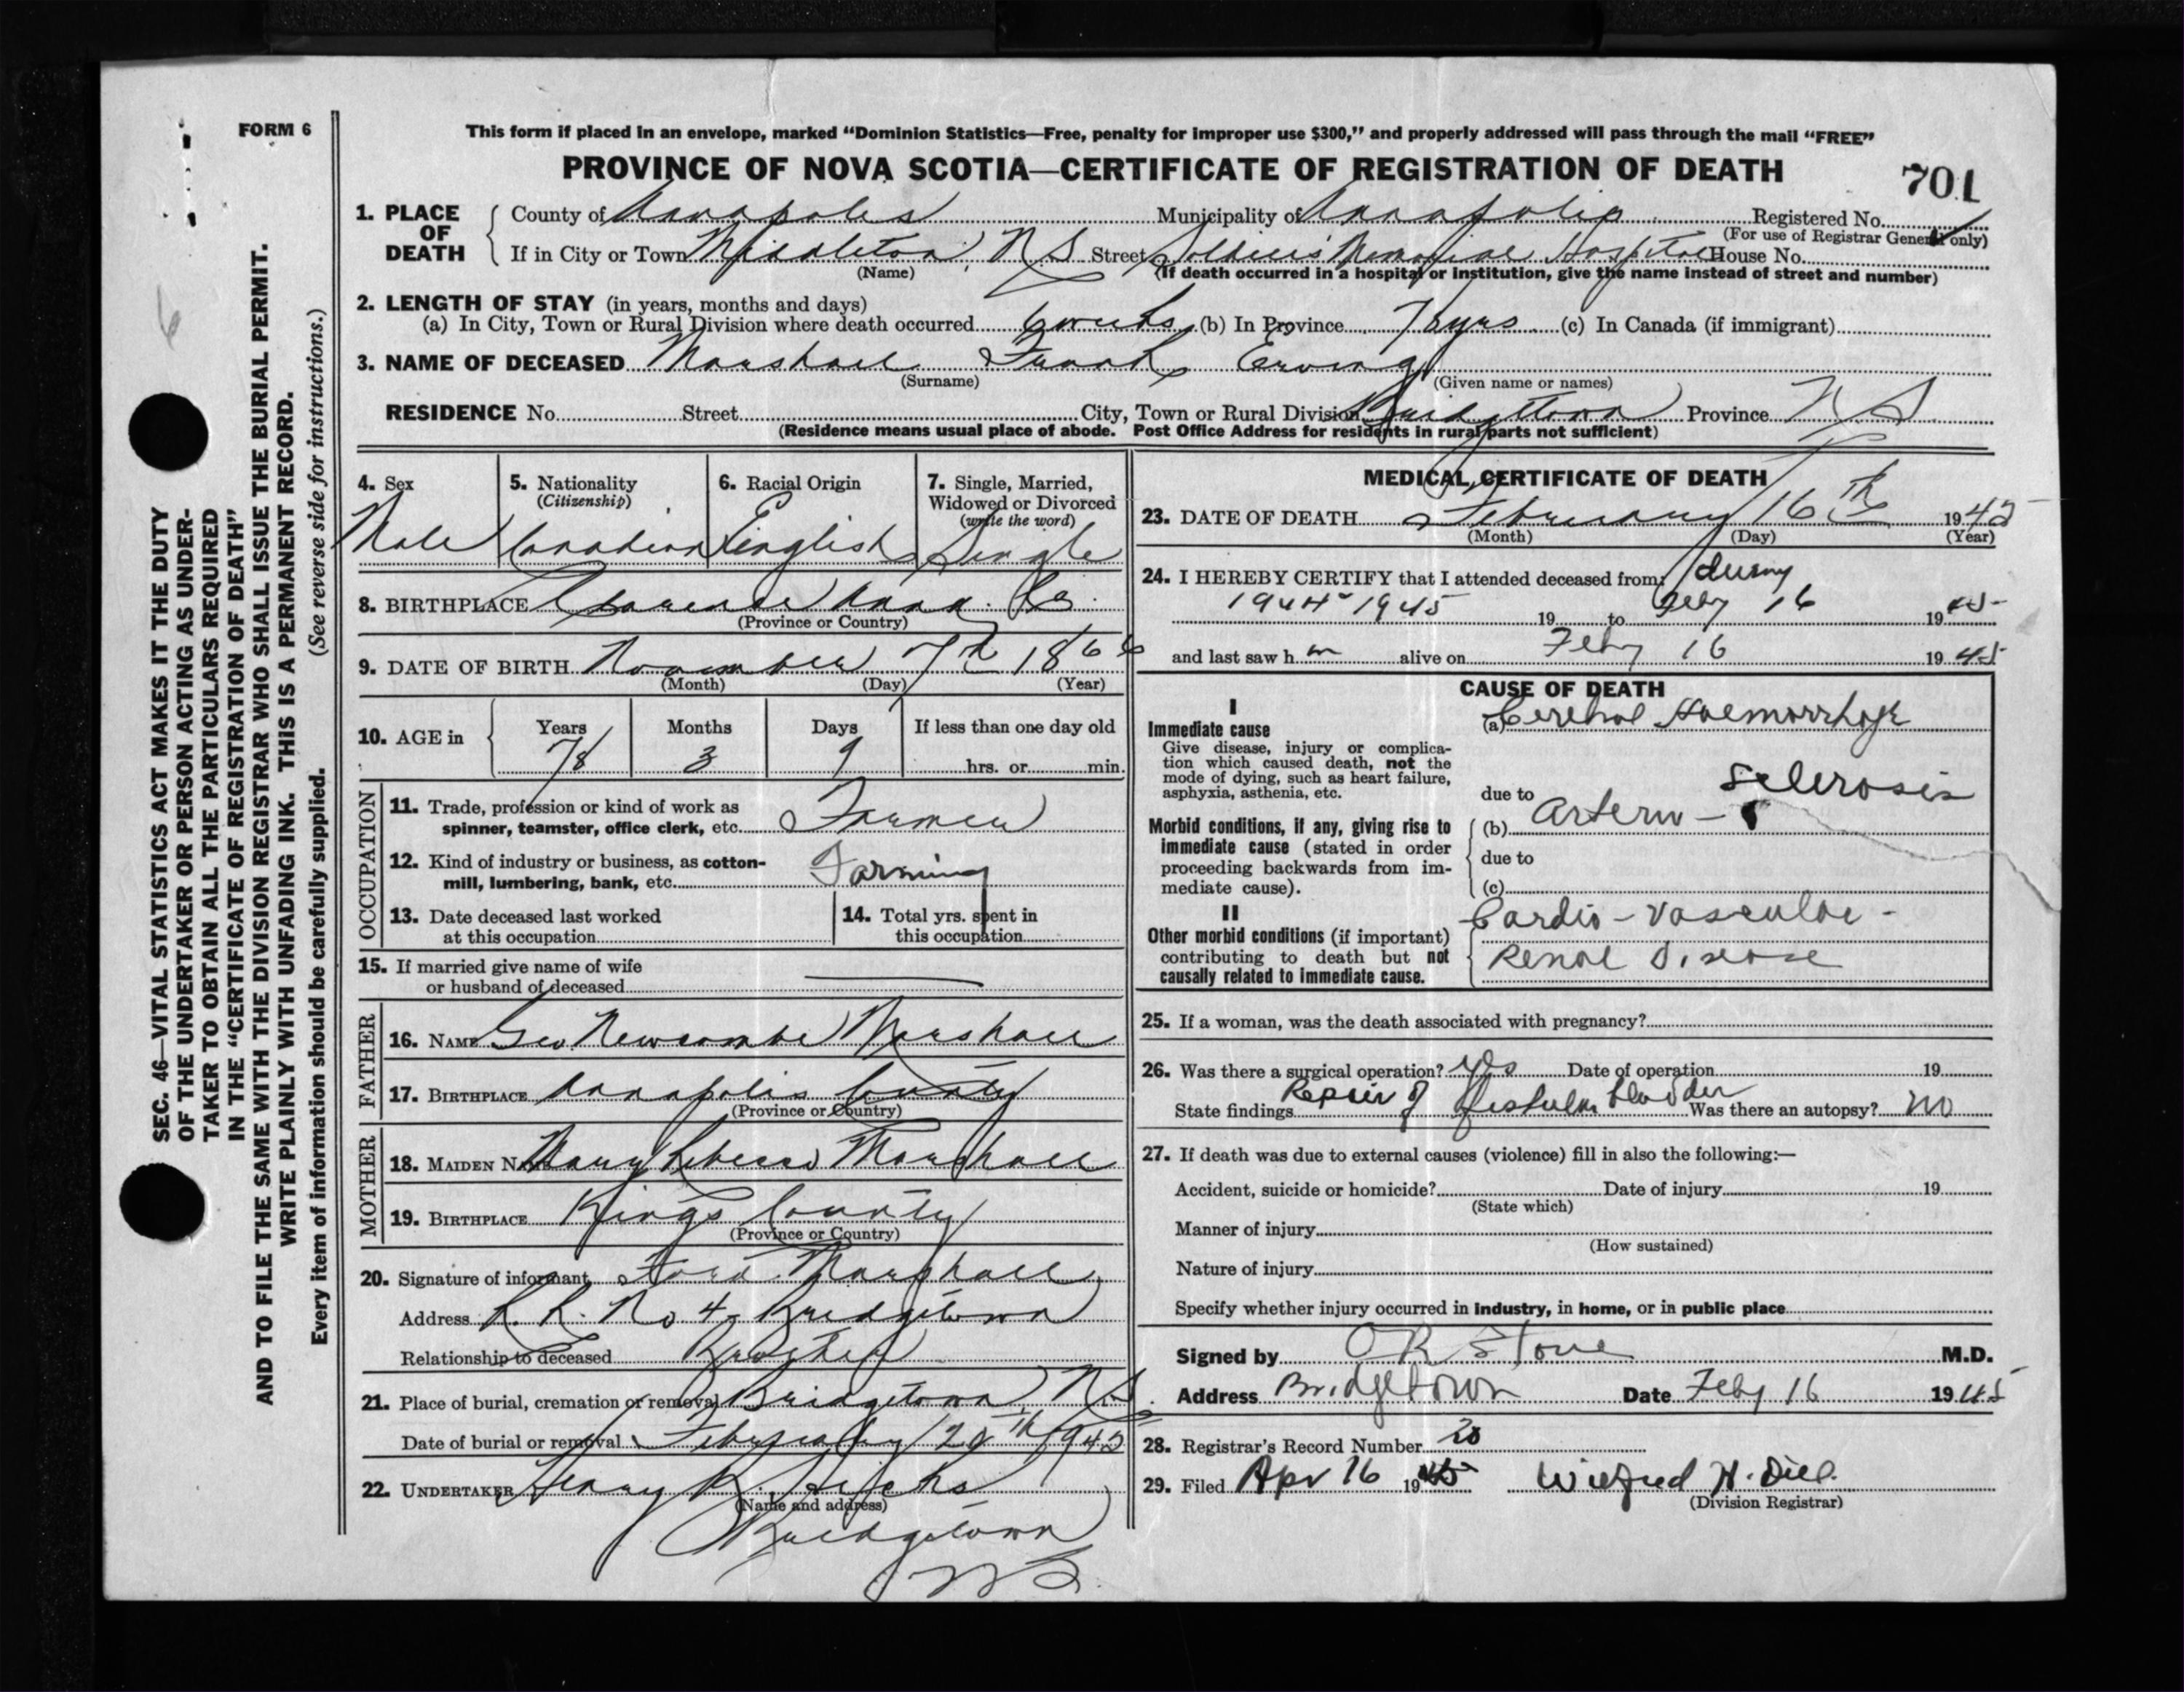 FORM 6
This form if placed in an envelope, marked “Dominion Statistics—Free, penalty for improper use $300,” and properly addressed will pass through the mail “FREE”
PROVINCE OF NOVA SCOTIA—CERTIFICATE OF REGISTRATION OF DEATH
701
1. PLACE OF DEATH
County of Annapolis Municipality of Annapolis Registered No.
(For use of Registrar General only)
If in City or Town Middleton, N.S Street Soldiers' Memorial Hospital House No.
(Name) (If death occurred in a hospital or institution, give the name instead of street and number)
2. LENGTH OF STAY (in years, months and days)
(a) In City, Town or Rural Division where death occurred 6 weeks (b) In Province 78 yrs (c) In Canada (if immigrant)
3. NAME OF DECEASED Marshall Frank Erving
(Surname) (Given name or names)
RESIDENCE No. Street City, Town or Rural Division Bridgetown Province N S
(Residence means usual place of abode. Post Office Address for residents in rural parts not sufficient)
4. Sex 5. Nationality (Citizenship) 6. Racial Origin 7. Single, Married, Widowed or Divorced (write the word)
Male Canadian English Single
8. BIRTHPLACE Clarence Anna. Co.
(Province or Country)
9. DATE OF BIRTH November 7th 1866
(Month) (Day) (Year)
10. AGE in Years Months Days If less than one day old
78 3 9 hrs. or min.
OCCUPATION
11. Trade, profession or kind of work as
spinner, teamster, office clerk, etc. Farmer
12. Kind of industry or business, as cotton-
mill, lumbering, bank, etc. Farming
13. Date deceased last worked
at this occupation
14. Total yrs. spent in
this occupation
15. If married give name of wife
or husband of deceased
FATHER
16. NAME Geo Newcombe Marshall
17. BIRTHPLACE Annapolis County
(Province or Country)
MOTHER
18. MAIDEN NAME Mary Rebecca Marshall
19. BIRTHPLACE Kings County
(Province or Country)
20. Signature of informant Marshall
Address R. R. No 4, Bridgetown
Relationship to deceased Brother
21. Place of burial, cremation or removal Bridgetown, N.S.
Date of burial or removal February 20th 1945
22. UNDERTAKER Henry B. Hicks
(Name and address)
Bridgetown
N S.
MEDICAL CERTIFICATE OF DEATH
23. DATE OF DEATH February 16th 1945
(Month) (Day) (Year)
24. I HEREBY CERTIFY that I attended deceased from: during
1944-1945 19 to Feby 16 1945
and last saw h m alive on Feby 16 1945
CAUSE OF DEATH
I
Immediate cause
Give disease, injury or complica-
tion which caused death, not the
mode of dying, such as heart failure,
asphyxia, asthenia, etc.
(a) Cerebral Haemorrhage
Morbid conditions, if any, giving rise to
immediate cause (stated in order
proceeding backwards from im-
mediate cause).
due to
(b) Arterio - sclerosis
due to
(c)
II
Other morbid conditions (if important)
contributing to death but not
causally related to immediate cause.
Cardio-vascular-
Renal Disease
25. If a woman, was the death associated with pregnancy?
26. Was there a surgical operation? yes Date of operation 19
State findings Repair of fistula bladder Was there an autopsy? no
27. If death was due to external causes (violence) fill in also the following:—
Accident, suicide or homicide? Date of injury 19
(State which)
Manner of injury
(How sustained)
Nature of injury
Specify whether injury occurred in industry, in home, or in public place
Signed by O R Stone M.D.
Address Bridgetown Date Feby 16 1945
28. Registrar's Record Number 20
29. Filed Apr 16 1945 Wilfred H. Dill.
(Division Registrar)
SEC. 46—VITAL STATISTICS ACT MAKES IT THE DUTY
OF THE UNDERTAKER OR PERSON ACTING AS UNDER-
TAKER TO OBTAIN ALL THE PARTICULARS REQUIRED
IN THE “CERTIFICATE OF REGISTRATION OF DEATH”
AND TO FILE THE SAME WITH THE DIVISION REGISTRAR WHO SHALL ISSUE THE BURIAL PERMIT.
WRITE PLAINLY WITH UNFADING INK. THIS IS A PERMANENT RECORD.
Every item of information should be carefully supplied. (See reverse side for instructions.)